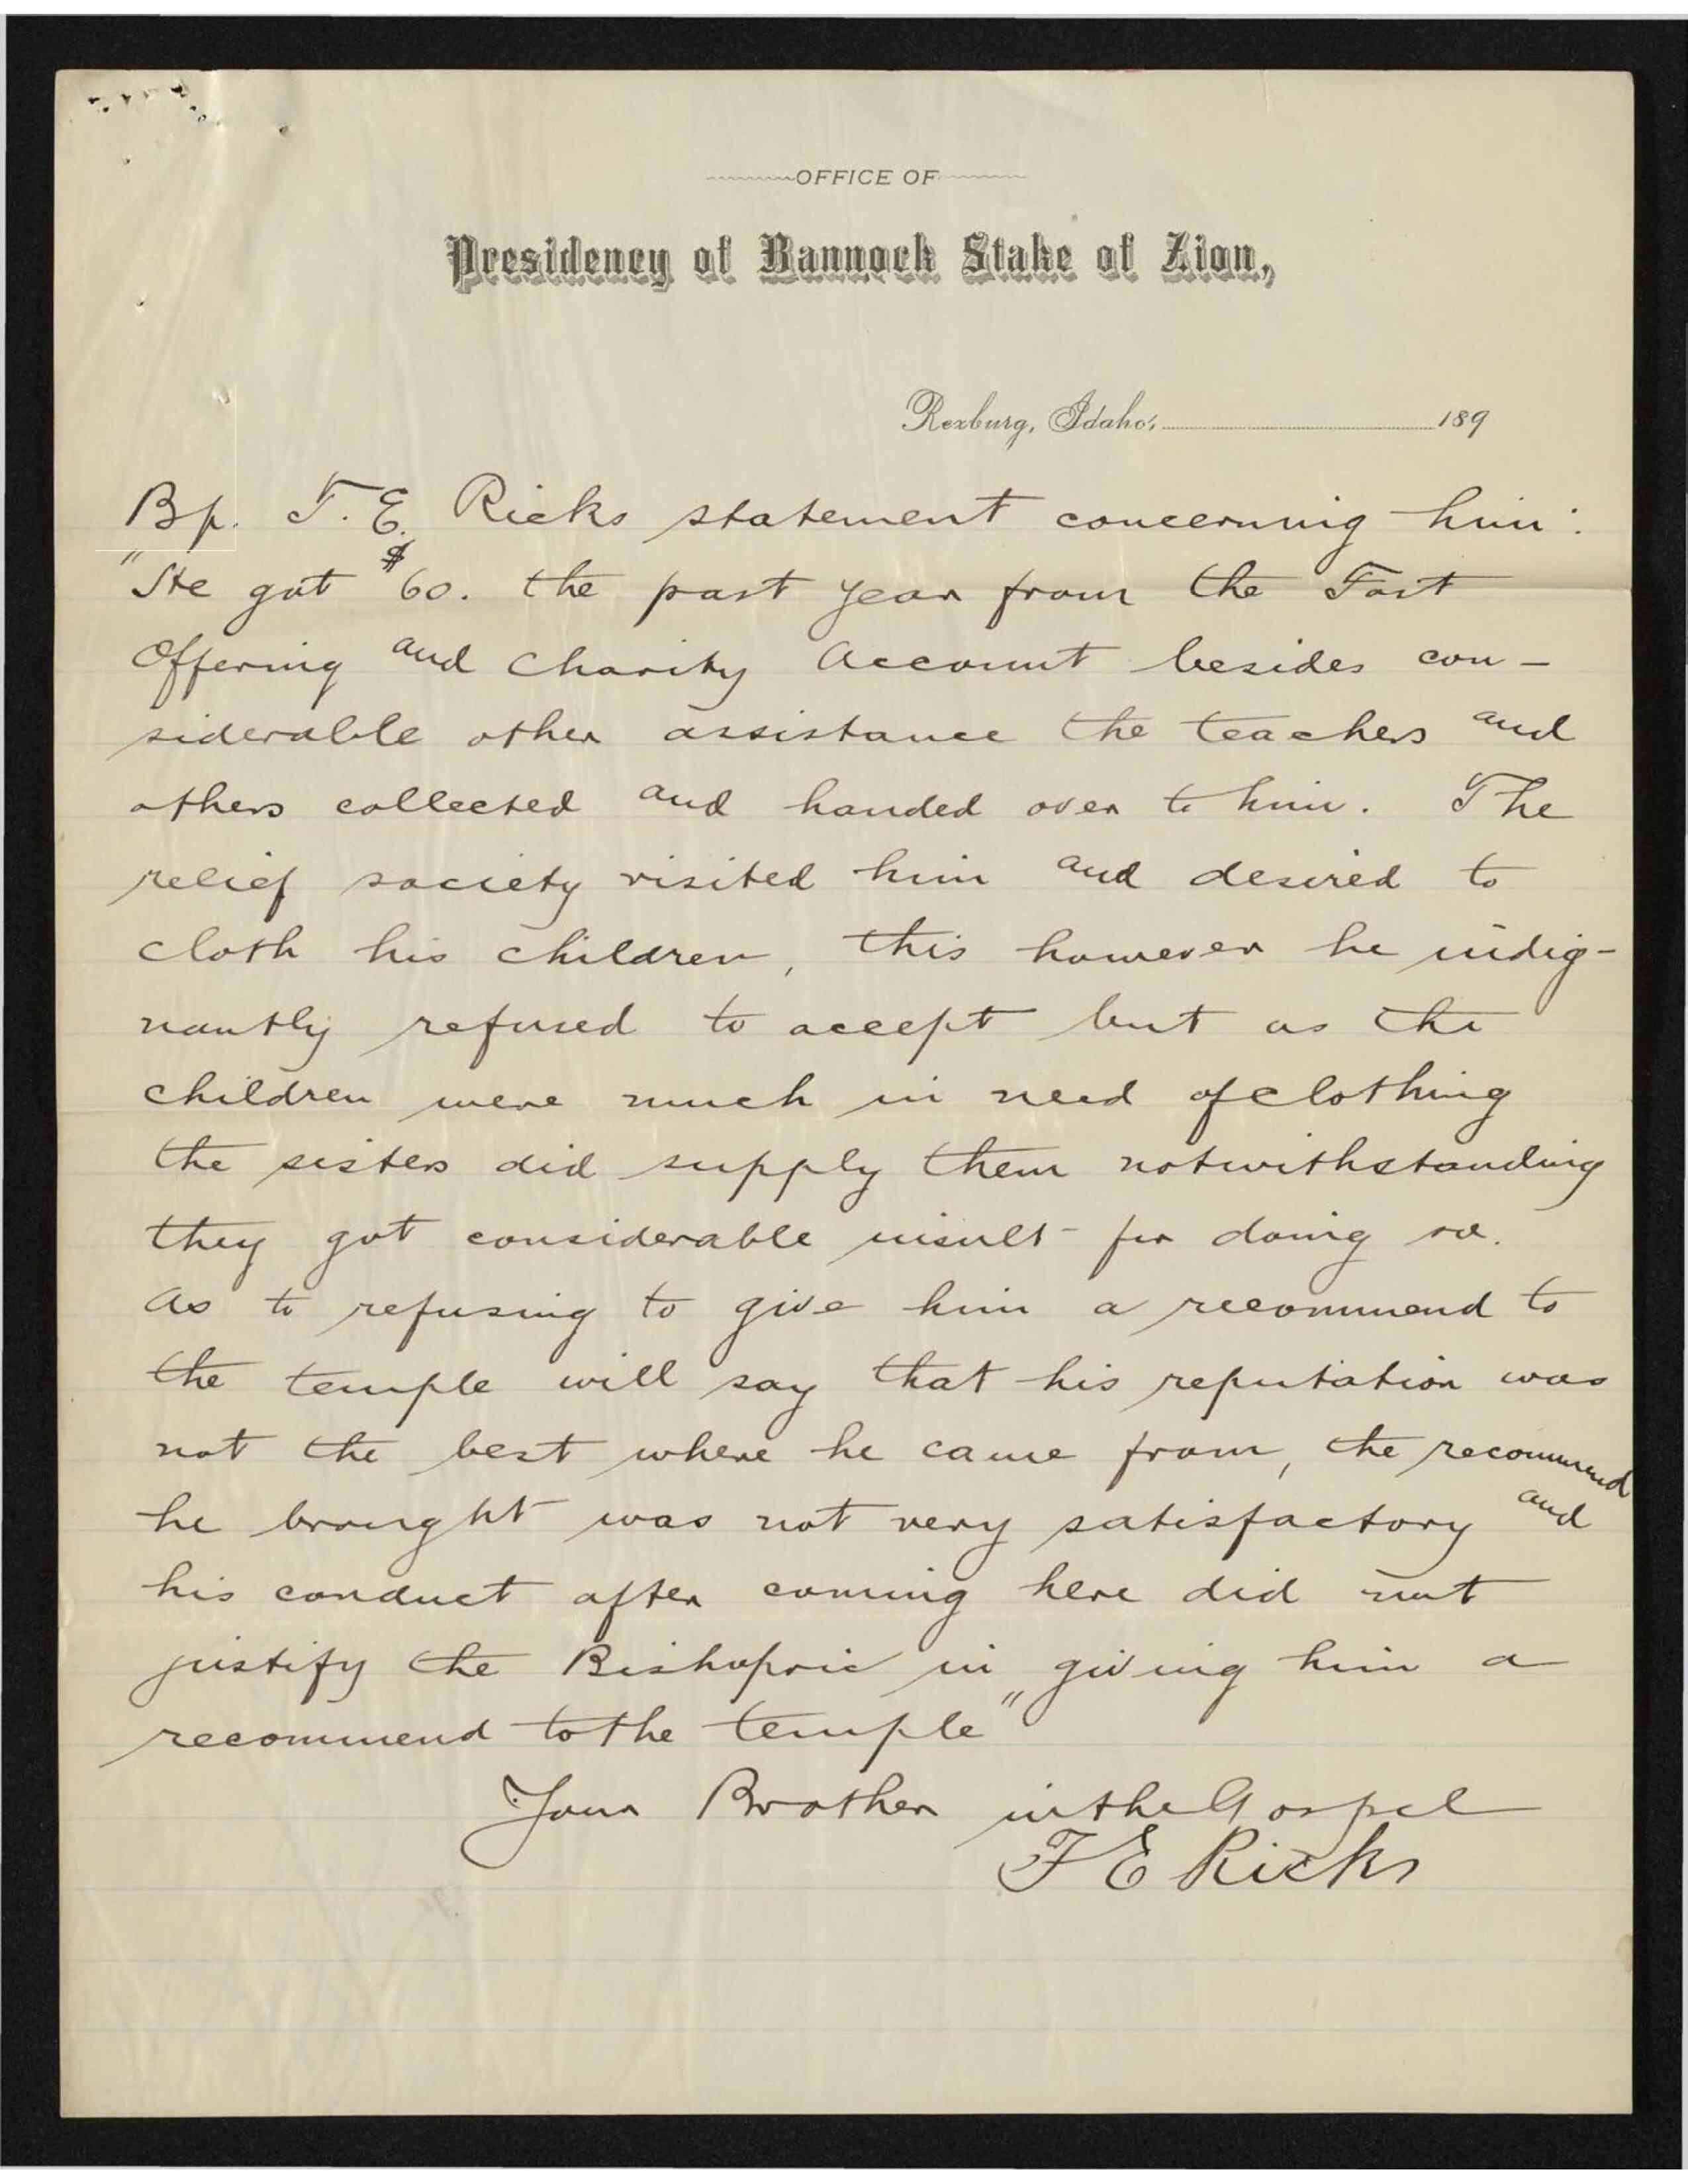 OFFICE OF
Presidency of Bannock Stake of Zion,
Rexburg, Idaho, 189
Bp. T. E. Ricks statement concerning him:
"He got $60. the past year from the Fast
Offering and Charity Account besides con-
siderable other assistance the teachers and
others collected and handed over to him. The
relief society visited him and desired to
cloth his children, this however he indig-
nantly refused to accept but as the
children were much in need of clothing
the sisters did supply them notwithstanding
they got considerable insult for doing so.
As to refusing to give him a recommend to
the temple will say that his reputation was
not the best where he came from, the recommend
he brought was not very satisfactory and
his conduct after coming here did not
justify the Bishopric in giving him a
recommend to the temple"
Your Brother in the Gospel
T E Ricks